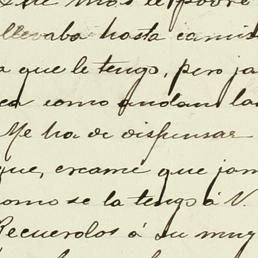 que mos le pobre
llevaba hasta camis
a que le tengo, pero ja
ca como andan las
Me ha de dispensar
que, creame que jam
omo se la tengo á V.
Recuerdos á su muy